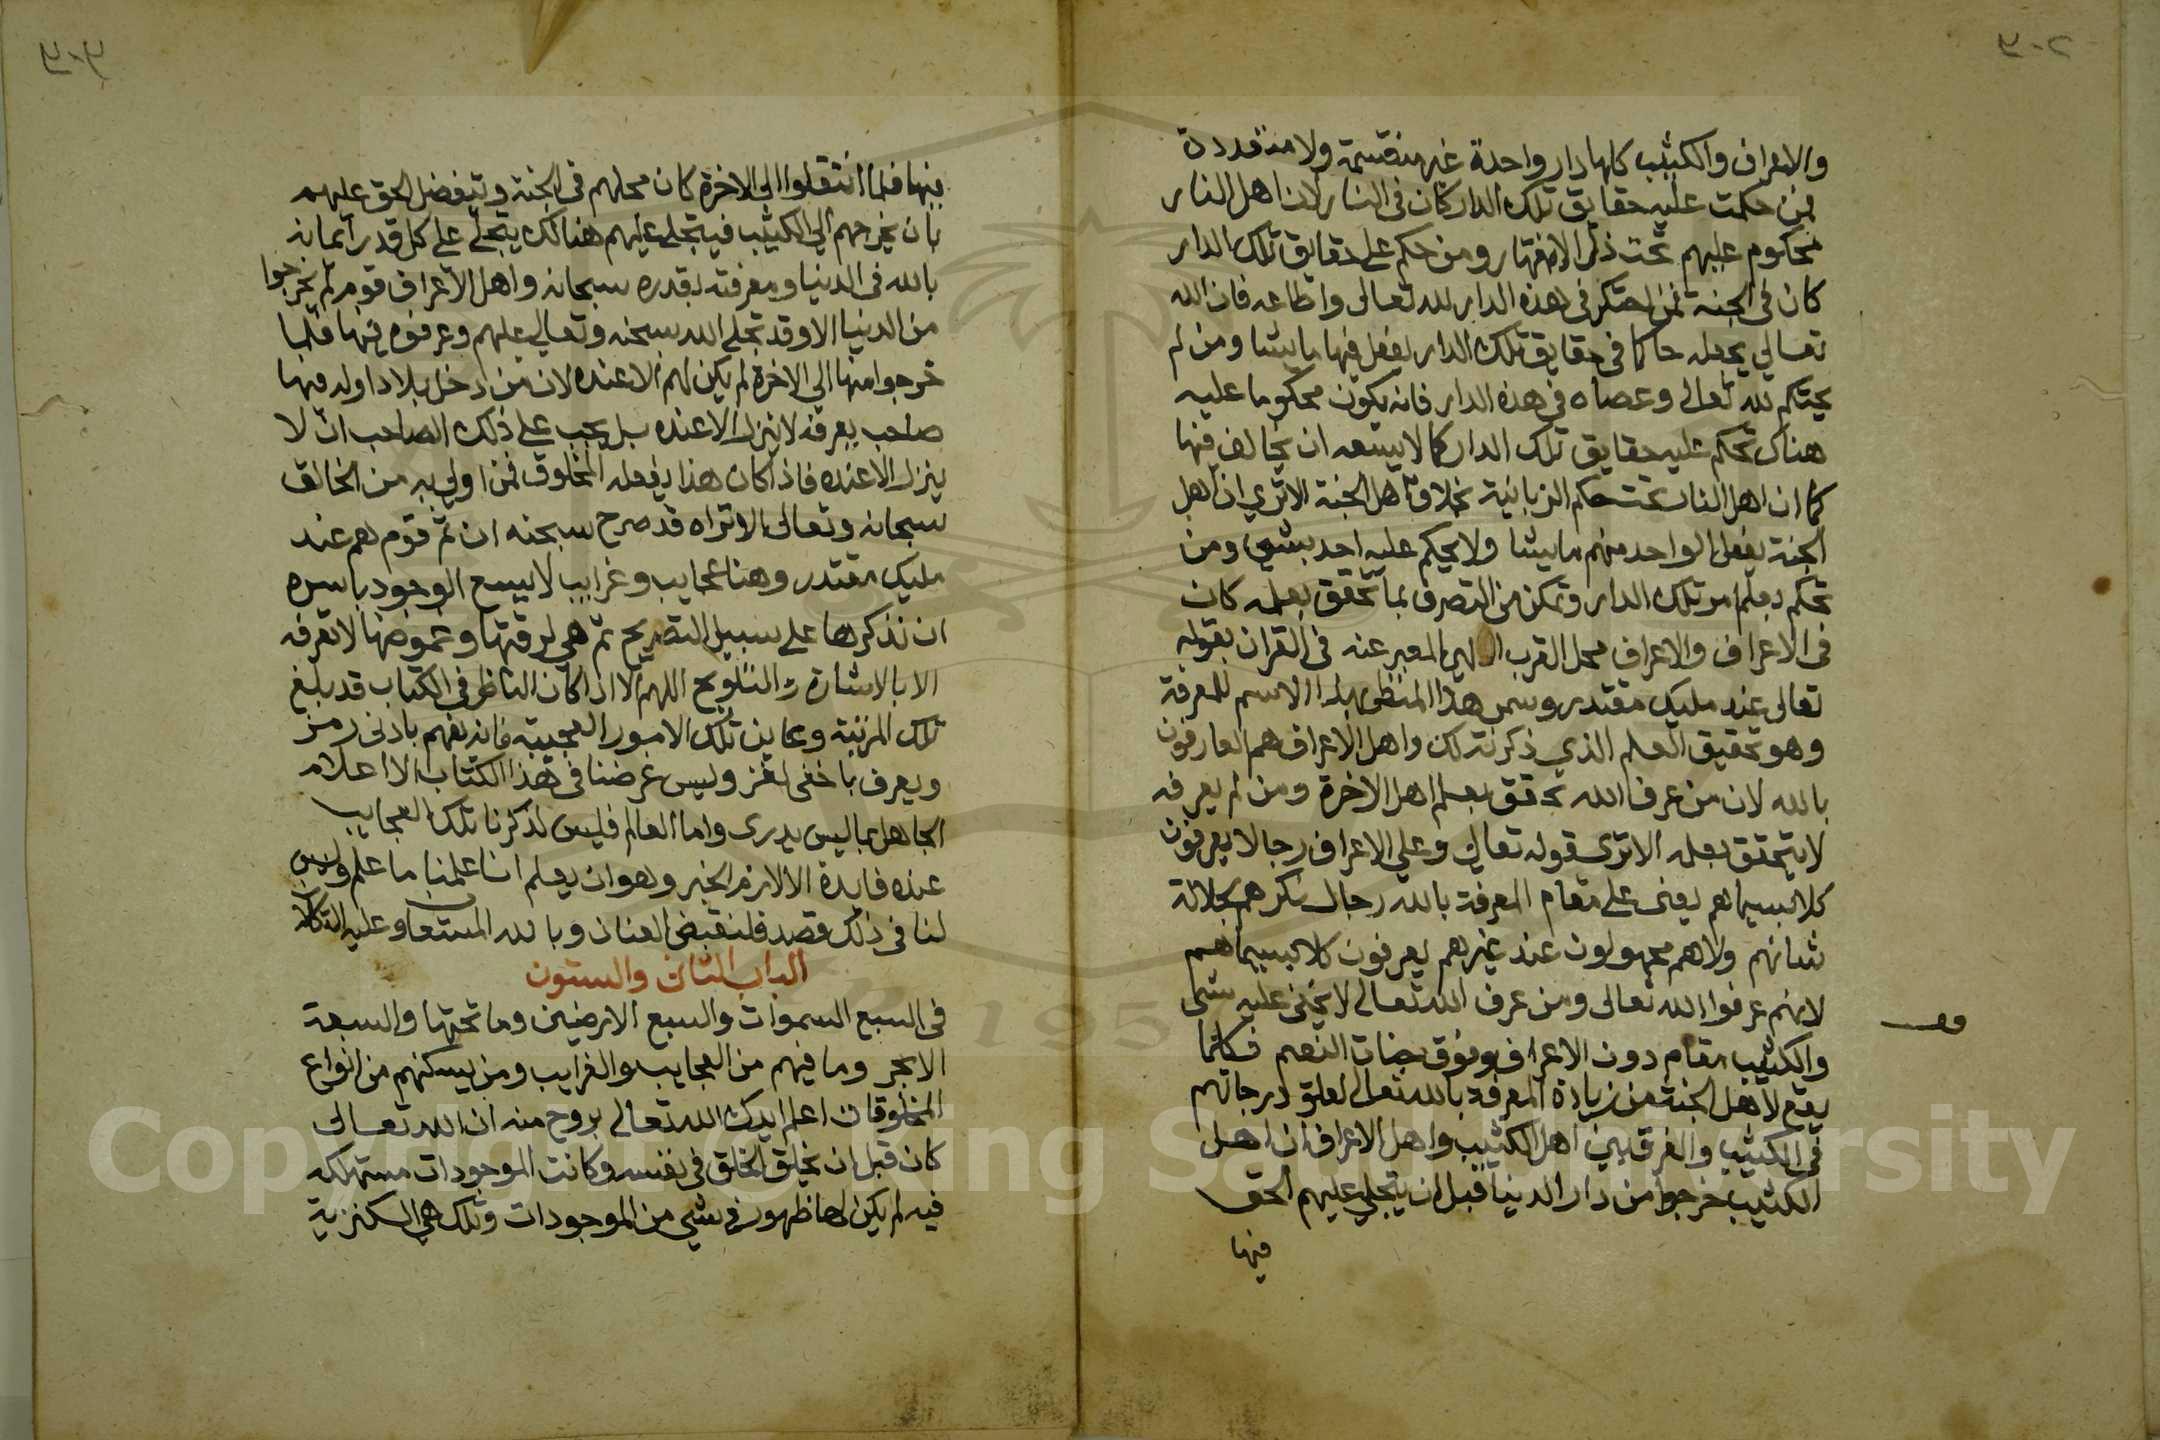 ٢٠٧
والاعراف والكثيب كلها دار واحدة غير منقسمة ولا متعددة
فمن حكمت عليه حقايق تلك الدار كان في النار لان اهل النار
محكوم عليهم تحت ذلك الانقهار ومن حكم على حقايق تلك الدار
كان في الجنة فمن احتكم في هذه الدار لله تعالى واطاعه فان الله
تعالى يجعله حاكما في حقايق تلك الدار يفعل فيها ما يشا ومن لم
يحتكم لله تعالى وعصاه في هذه الدار فانه يكون محكوما عليه
هناك تحكم عليه حقايق تلك الدار كما لا يسعه ان يخالف فيها
كما ان اهل النار تحت حكم الزبانية بخلاف اهل الجنة الا ترى ان اهل
الجنة يفعل الواحد منهم ما يشا ولا يحكم عليه احد بشي ومن
تحكم بعلم امر تلك الدار وتمكن من التصرف بما تحقق بعلمه كان
في الاعراف والاعراف محل القرب الالهي المعبر عنه في القران بقوله
تعالى عند مليك مقتدر وسمى هذا المنظر بهذا الاسم للمعرفة
وهو تحقيق العلم الذي ذكرته لك واهل الاعراف هم العارفون
بالله لان من عرف الله تحقق بعلم اهل الاخرة ومن لم يعرفه
لا يتحقق بعلمه الا ترى قوله تعالى وعلى الاعراف رجال يعرفون
كلا بسيماهم يعنى على مقام المعرفة بالله رجال نكرهم لجلالة
شانهم ولانهم مجهولون عند غيرهم يعرفون كلا بسيماهم
لانهم عرفوا الله تعالى ومن عرف الله تعالى لا يخفى عليه شي
والكثيب مقام دون الاعراف وفوق جنات النعيم فكلما
يقع لاهل الجنة من زيادة المعرفة بالله تعالى تعلو درجاتهم
في الكثيب والفرق بين اهل الكثيب واهل الاعراف ان اهل
الكثيب خرجوا من دار الدنيا قبل ان يتجلى عليهم الحق
فيها
فيها فلما انتقلوا الى الاخرة كان محلهم في الجنة ويتفضل الحق عليهم
بان يخرجهم الى الكثيب فيتجلى عليهم هنالك يتجلى على كل قدر ايمانه
بالله في الدنيا ومعرفته بقدره سبحانه واهل الاعراف قوم لم يخرجوا
من الدنيا الا وقد تجلى الله سبحنه وتعالى عليهم وعرفوه فيها فلما
خرجوا منها الى الاخرة لم يكن لهم الا عنده لان من دخل بلادا وله فيها
صاحب يعرفه لا ينزل الا عنده بل يجب على ذلك الصاحب ان لا
ينزل الا عنده فاذا كان هذا يفعله المخلوق فمن اولى به من الخالق
سبحانه وتعالى الا تراه قد صرح سبحنه ان ثم قوم هم عند
مليك مقتدر وهنا عجايب وغرايب لا يسع الوجود باسره
ان نذكرها على سبيل التصريح ثم هي لرقتها وغموضها لا تعرفه
الا بالاشارة والتلويح اللهم الا اذا كان الناظر في الكتاب قد بلغ
تلك المرتبة وعاين تلك الامور العجيبة فانه يفهم بادنى رمز
ويعرف باخفى لغز وليس غرضنا في هذا الكتاب الا اعلام
الجاهل بما ليس يدرى واما العالم فليس لذكرنا تلك العجايب
عنده فايدة الا لازم الخبر وهو ان يعلم اننا علمنا ما علم وليس
لنا في ذلك قصد فلنقبض العنان وبالله المستعان وعليه التكلان
الباب الثاني والستون
في السبع السموات والسبع الارضين وما تحتها والسبعة
الابحر وما فيهم من العجايب والغرايب ومن يسكنهم من انواع
المخلوقات اعلم ايدك الله تعالى بروح منه ان الله تعالى
كان قبل ان يخلق الخلق في نفسه وكانت الموجودات مستهلكه
فيه لم يكن لها ظهور في شي من الموجودات وتلك هي الكنزية